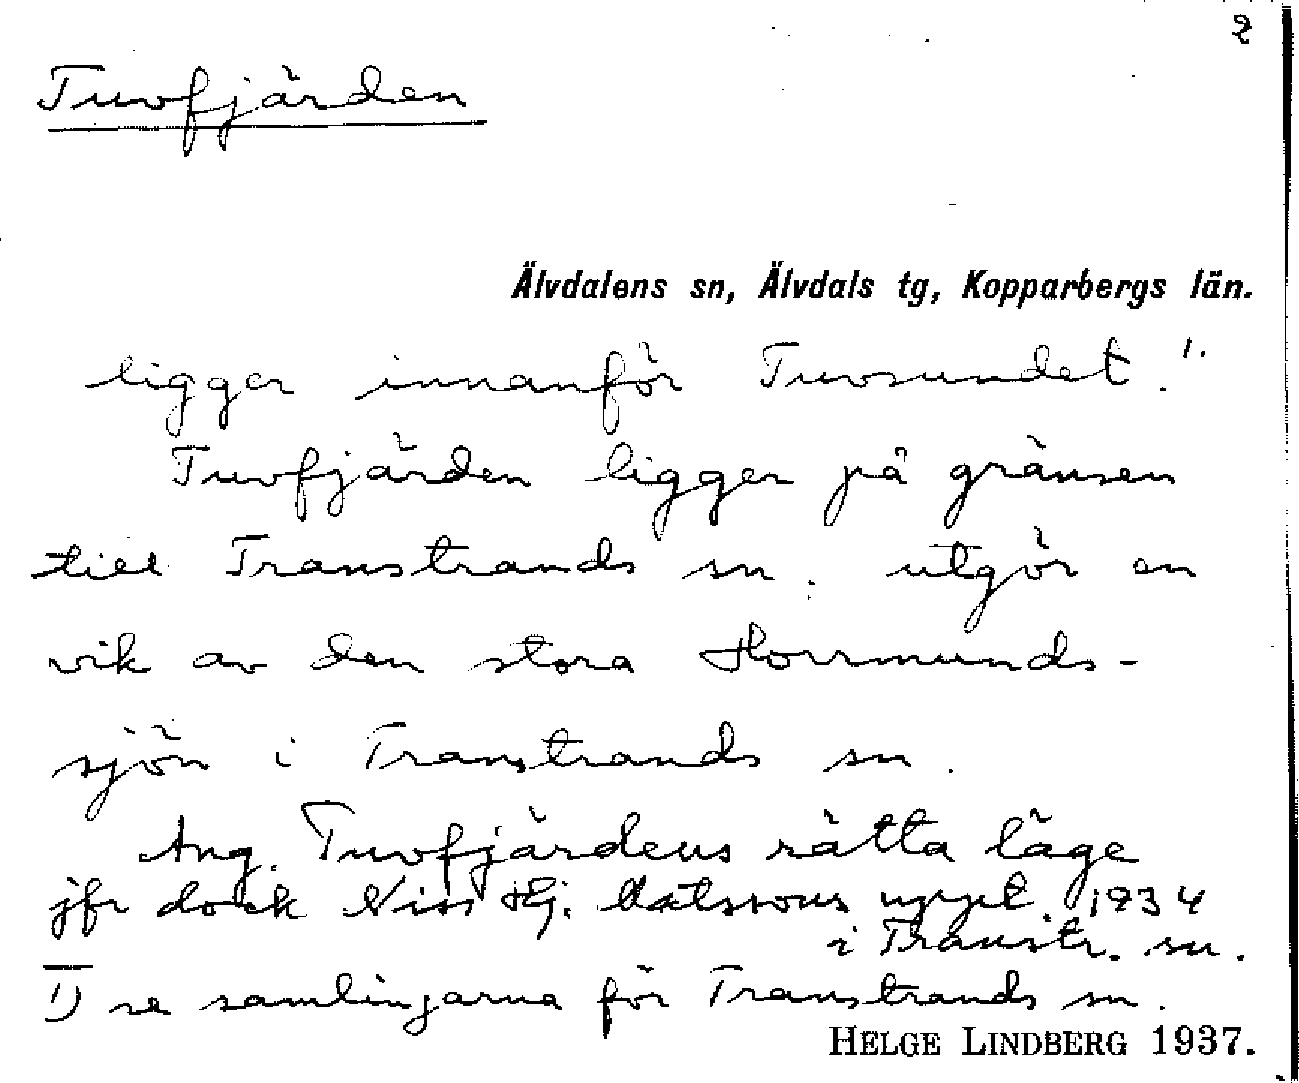 2
Tuvfjärden
Älvdalens sn, Älvdals tg, Kopparbergs län.
ligger innanför Tuvsundet. 1.
Tuvfjärden ligger på gränsen
till Transtrands sn. utgör en
vik av den stora Horrmunds-
sjön i Transtrands sn.
Ang. Tuvfjärdens rätta läge
jfr dock Niss Hj. Matssons uppt. 1934
i Transtr. sn.
1) se samlingarna för Transtrands sn.
HELGE LINDBERG 1937.